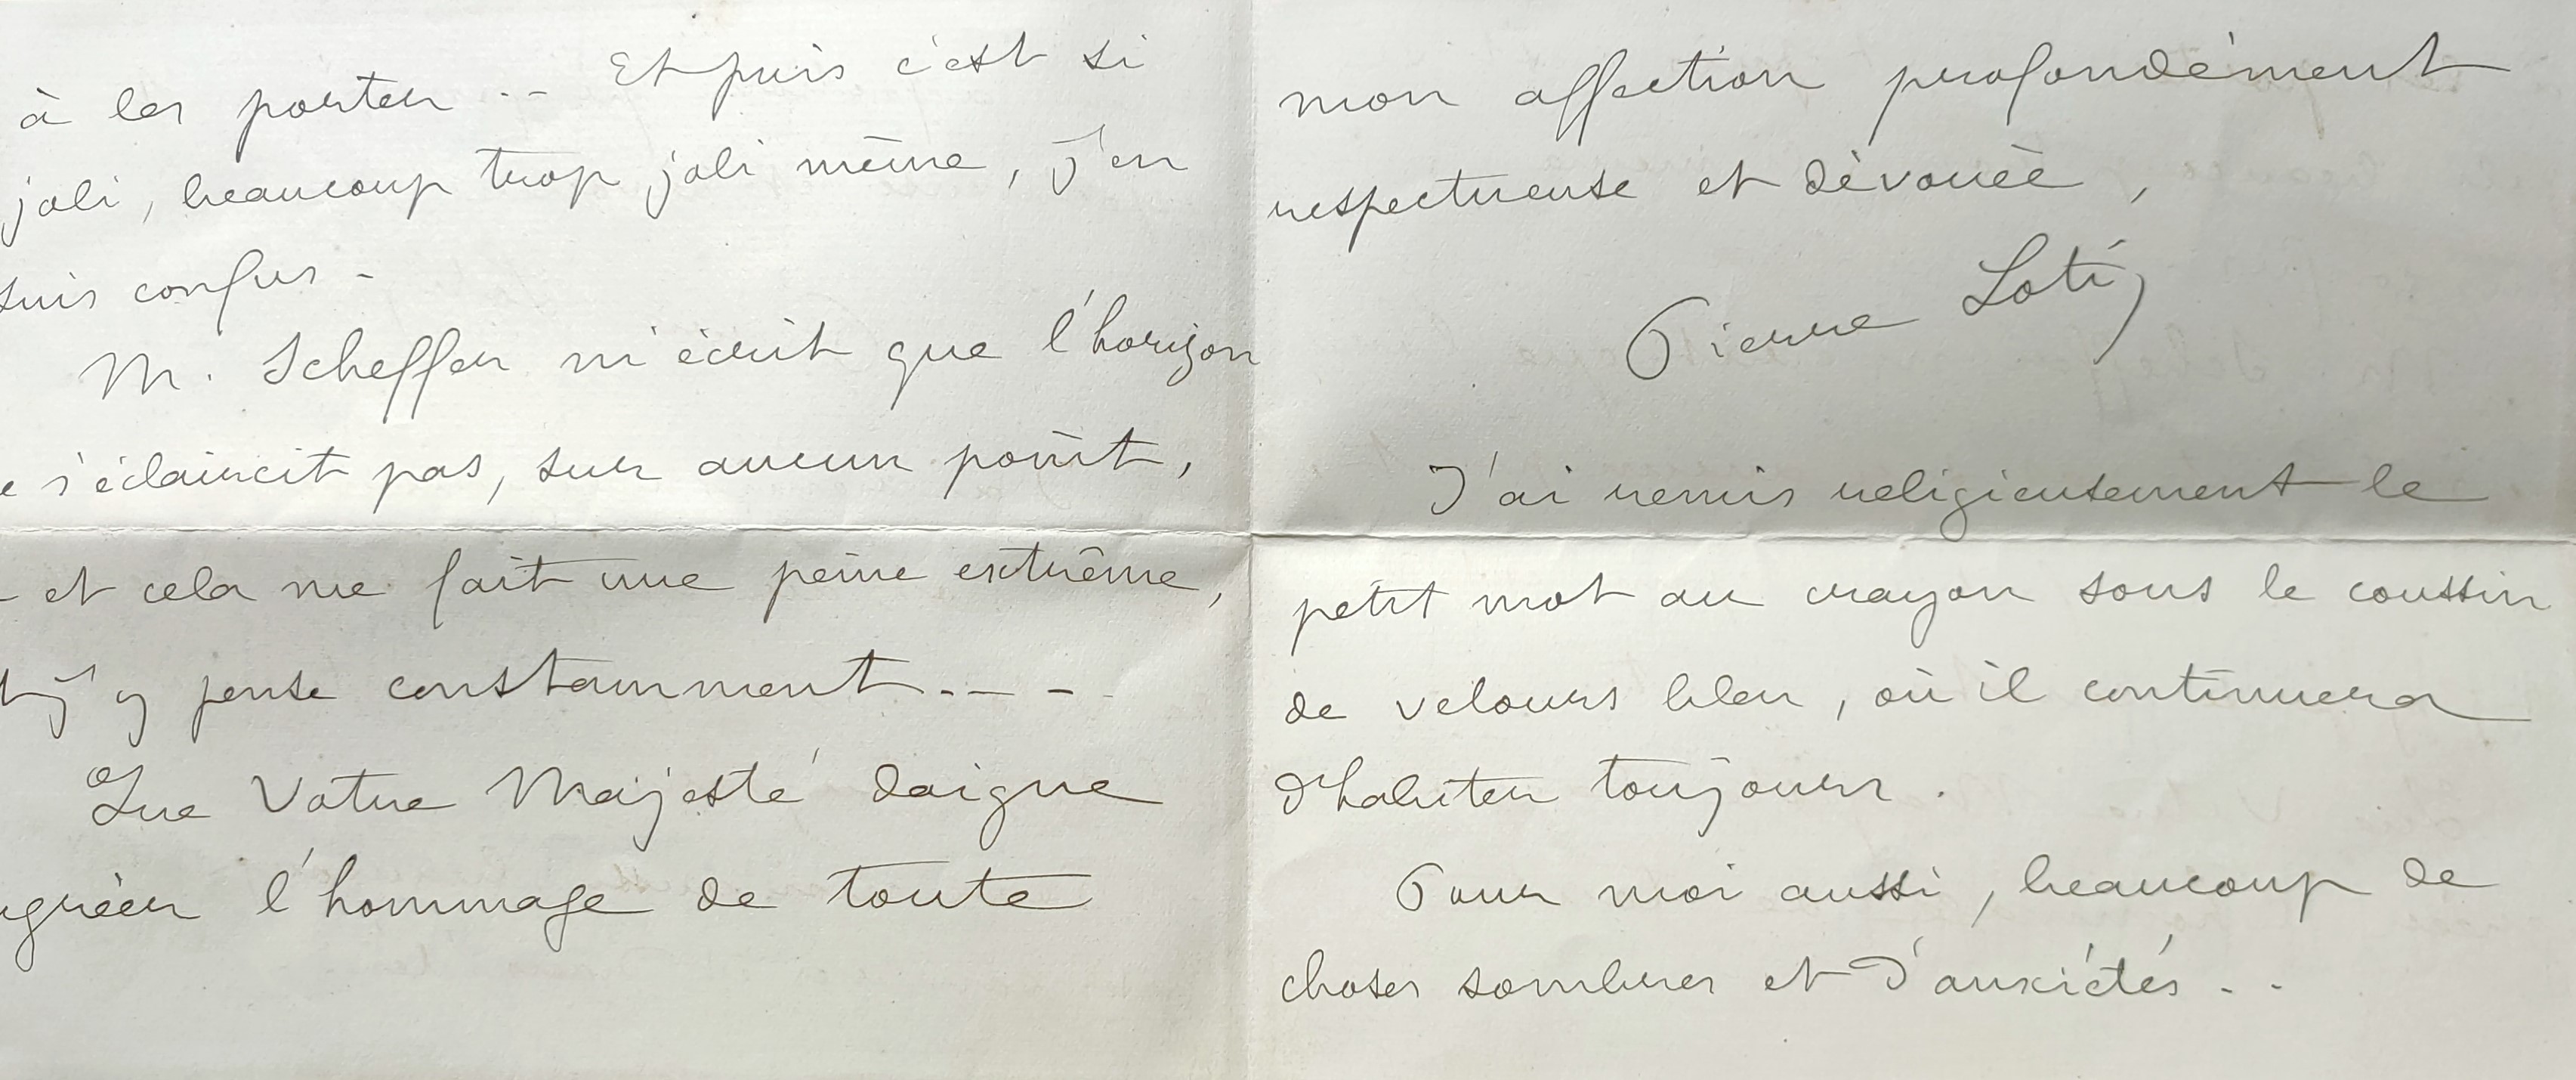 à les porter .. Et puis c'est si
joli, beaucoup trop joli même, j'en
suis confus -
M. Scheffer m'écrit que l'horizon
s'éclaircit pas, sur aucun point,
- et cela me fait une peine extrême,
j'y pense constamment - - -
Que Votre Majesté daigne
agréer l'hommage de toute
mon affection profondément
respectueuse et dévouée,
Pierre Loti
J'ai remis religieusement le
petit mot au crayon sous le coussin
de velours bleu, où il continuera
d'habiter toujours.
Pour moi aussi, beaucoup de
choses sombres et d'anxiétés . .